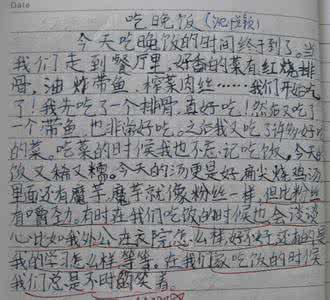 Date
吃晚饭
今天吃晚饭的时间终于到了。当
我们走到餐厅里,好香的菜有红烧排
骨,油炸带鱼,榨菜肉丝……我们开始吃
了!我先吃了一个排骨,真好吃!然后又吃了
一个带鱼,也非常好吃。之后我又吃了许多好吃
的菜。吃菜的时候我也不忘记吃饭。今天的
饭又稀又糯。今天的汤更是好扁尖烧鸡汤
里面还有魔芋,魔芋就像粉丝一样,但比粉丝
有嚼劲。有时在我们吃饭的时候也会谈谈
心,比如我外公去医院怎么样,好不好,还有的是
我的学习怎么样等等,在我们吃饭的时候
我们总是不时的笑着。